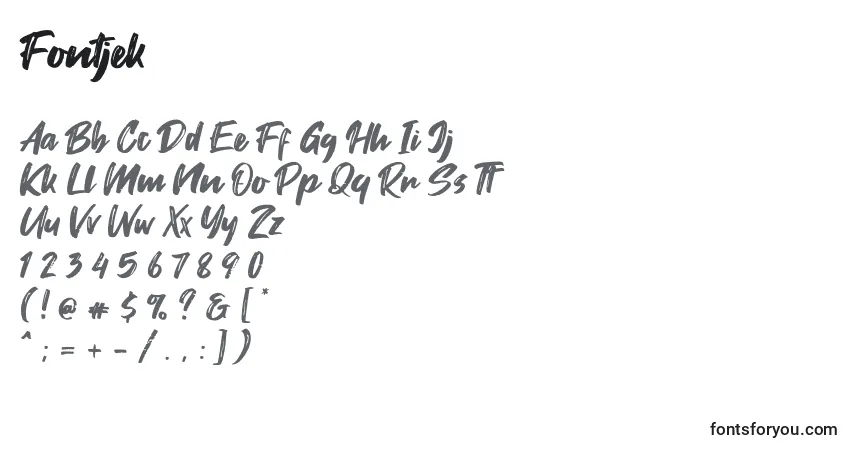 Fontjek
Aa Bb Cc Dd Ee Ff Gg Hh Ii Jj
Kk Ll Mm Nn Oo Pp Qq Rr Ss Tt
Uu Vv Ww Xx Yy Zz
1 2 3 4 5 6 7 8 9 0
( ! @ # $ % ? & [ *
^ ; = + - / . , : ] )
fontsforyou.com